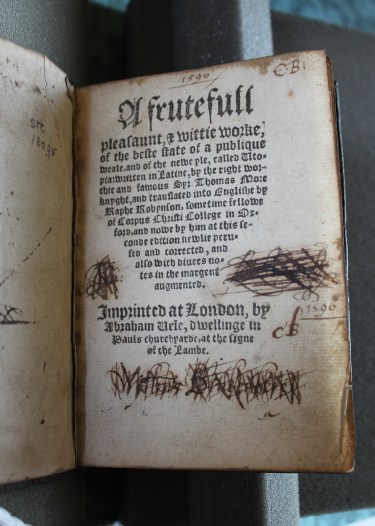 1590
CB
STC
18095
A frutefull
pleasaunt, & wittie worke,
of the beste state of a publique
weale, and of the newe yle, called Uto-
pia: written in Latine, by the right wor-
thie and famous Syr Thomas More
knyght, and translated into Englishe by
Raphe Robynson, sometime fellowe
of Corpus Christi College in Ox-
ford, and nowe by him at this se-
conde edition newlie peru-
sed and corrected, and
also with diuers no-
tes in the margent
augmented.
Imprinted at London, by
Abraham Vele, dwellinge in
Pauls churchyarde, at the signe
of the Lambe.
1590
CB